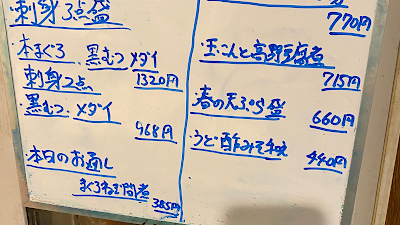 刺身3点盛
本まぐろ 黒むつ メダイ
1320円
刺身2点
黒むつ メダイ
968円
本日のお通し
まぐろねぎ間煮
385円
770円
玉こんと高野豆腐煮
715円
春の天ぷら盛
660円
うど酢みそ和え
440円